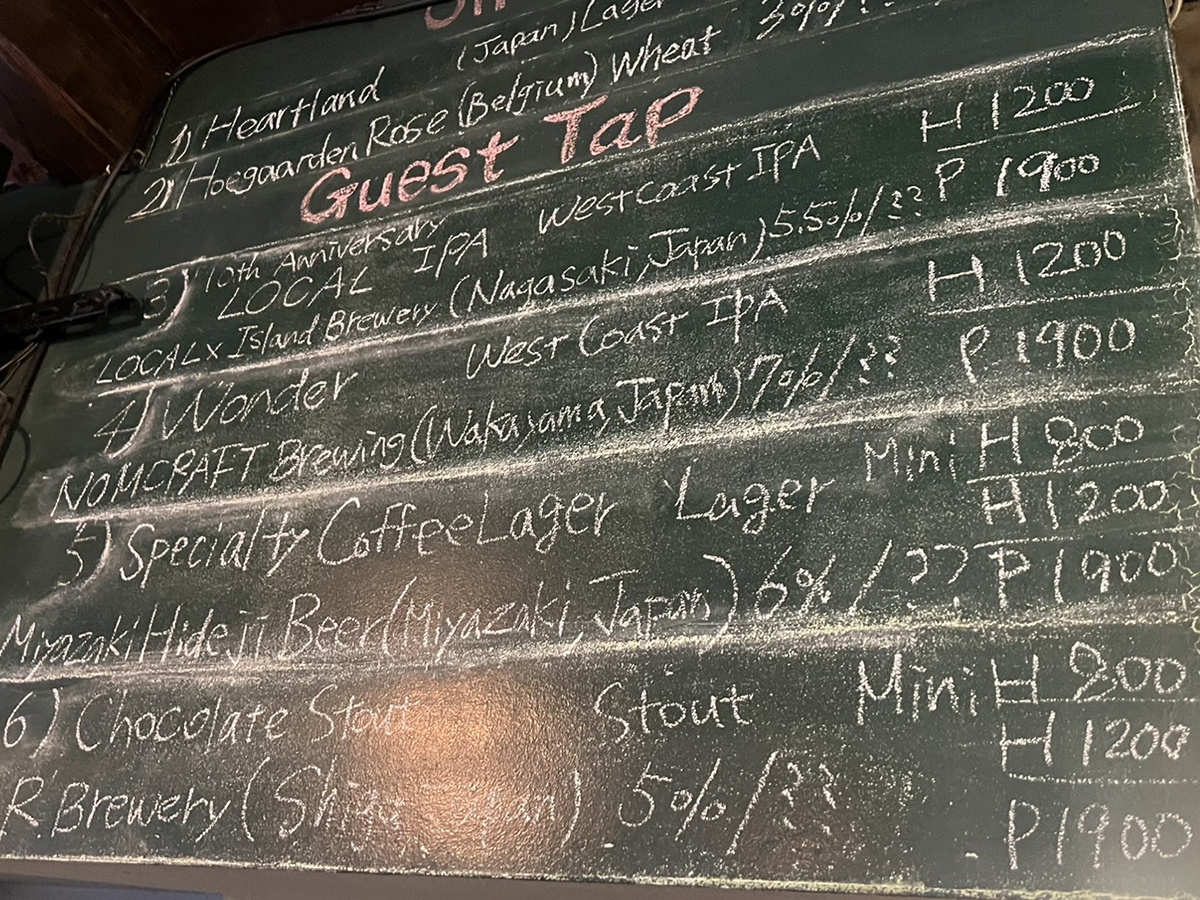 1) Heartland (Japan) Lager
2) Hoegaarden Rose (Belgium) Wheat 3%/??
Guest Tap
3) 10th Anniversary
LOCAL IPA West Coast IPA H 1200
LOCAL x Island Brewery (Nagasaki, Japan) 5.5%/?? P 1900
4) Wonder West Coast IPA H 1200
NOMCRAFT Brewing (Wakayama, Japan) 7%/?? P 1900
5) Specialty Coffee Lager Lager Mini H 800
H 1200
Miyazaki Hideji Beer (Miyazaki, Japan) 6%/?? P 1900
6) Chocolate Stout Stout Mini H 800
H 1200
R.Brewery (Shiga Japan) 5%/?? P 1900